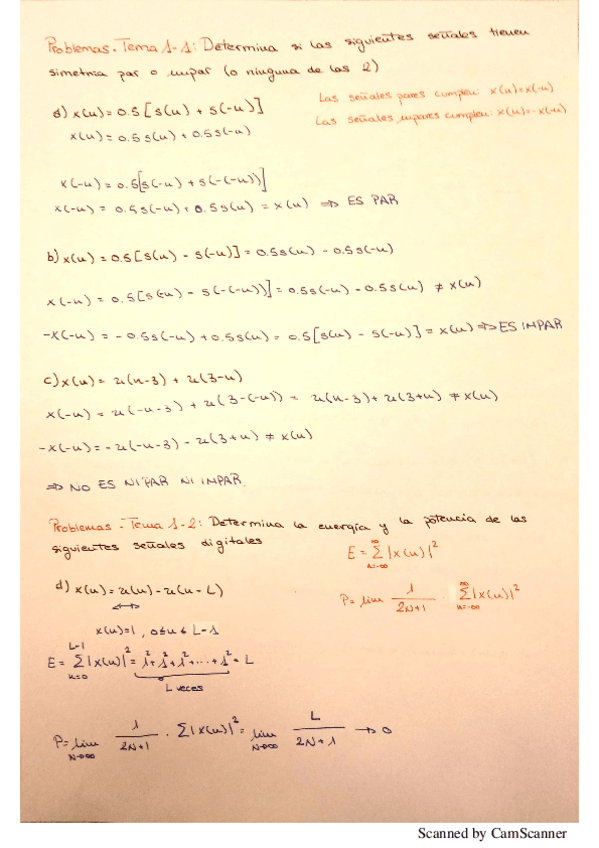 Problemas - Tema 1-1: Determina si las siguientes señales tienen
simetria par o impar (o ninguna de las 2)
Las señales pares cumplen: x(n)=x(-n)
Las señales impares cumplen: x(n)=-x(-n)
a) x(n) = 0.5 [s(n) + s(-n)]
x(n) = 0.5s(n) + 0.5s(-n)
x(-n) = 0.5[s(-n) + s(-(-n))]
x(-n) = 0.5s(-n) + 0.5s(n) = x(n) ⇒ ES PAR
b) x(n) = 0.5 [s(n) - s(-n)] = 0.5s(n) - 0.5s(-n)
x(-n) = 0.5[s(-n) - s(-(-n))] = 0.5s(-n) - 0.5s(n) ≠ x(n)
-x(-n) = -0.5s(-n) + 0.5s(n) = 0.5[s(n) - s(-n)] = x(n) ⇒ ES IMPAR
c) x(n) = u(n-3) + u(3-n)
x(-n) = u(-n-3) + u(3-(-n)) = u(n-3) + u(3+n) ≠ x(n)
-x(-n) = -u(-n-3) - u(3+n) ≠ x(n)
⇒ NO ES NI PAR NI IMPAR.
Problemas - Tema 1-2: Determina la energía y la potencia de las
siguientes señales digitales
E = ∞ Σ n=-∞ |x(n)|²
d) x(n) = u(n) - u(n-L)
P = lim 1/(2N+1) · ∞ Σ n=-∞ |x(n)|²
x(n)=1, 0≤n≤L-1
E = L-1 Σ n=0 |x(n)|² = 1²+1²+1²+...+1² = L
L veces
P = lim N→∞ 1/(2N+1) · Σ|x(n)|² = lim N→∞ L/(2N+1) → 0
Scanned by CamScanner